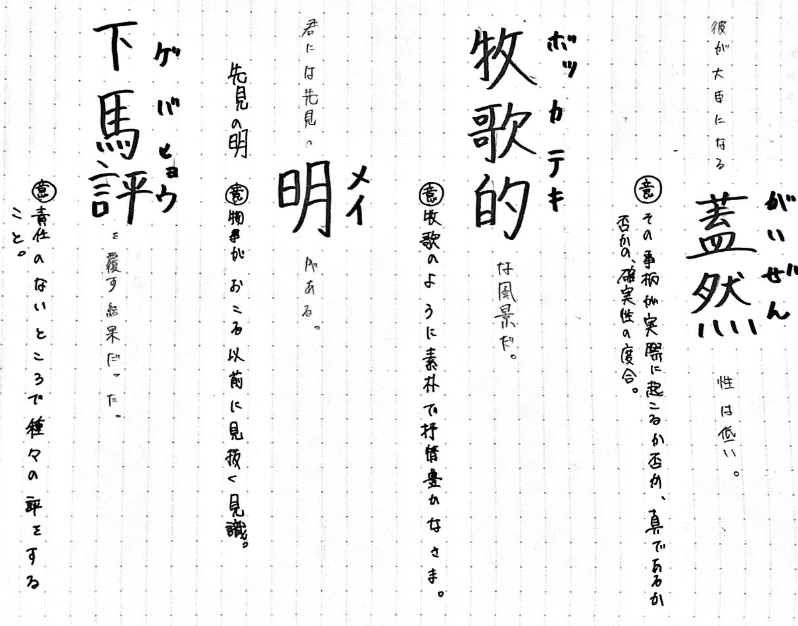 彼が大臣になる蓋然性は低い。
がいぜん
㊥その事柄が実際に起こるか否か、真であるか
否かの、確実性の度合。
牧歌的な風景だ。
ボッカテキ
㊥牧歌のように素朴で抒情豊かなさま。
君には先見の明がある。
メイ
先見の明
㊥物事がおこる以前に見抜く見識。
下馬評を覆す結果だった。
ゲバヒョウ
㊥責任のないところで種々の評をする
こと。